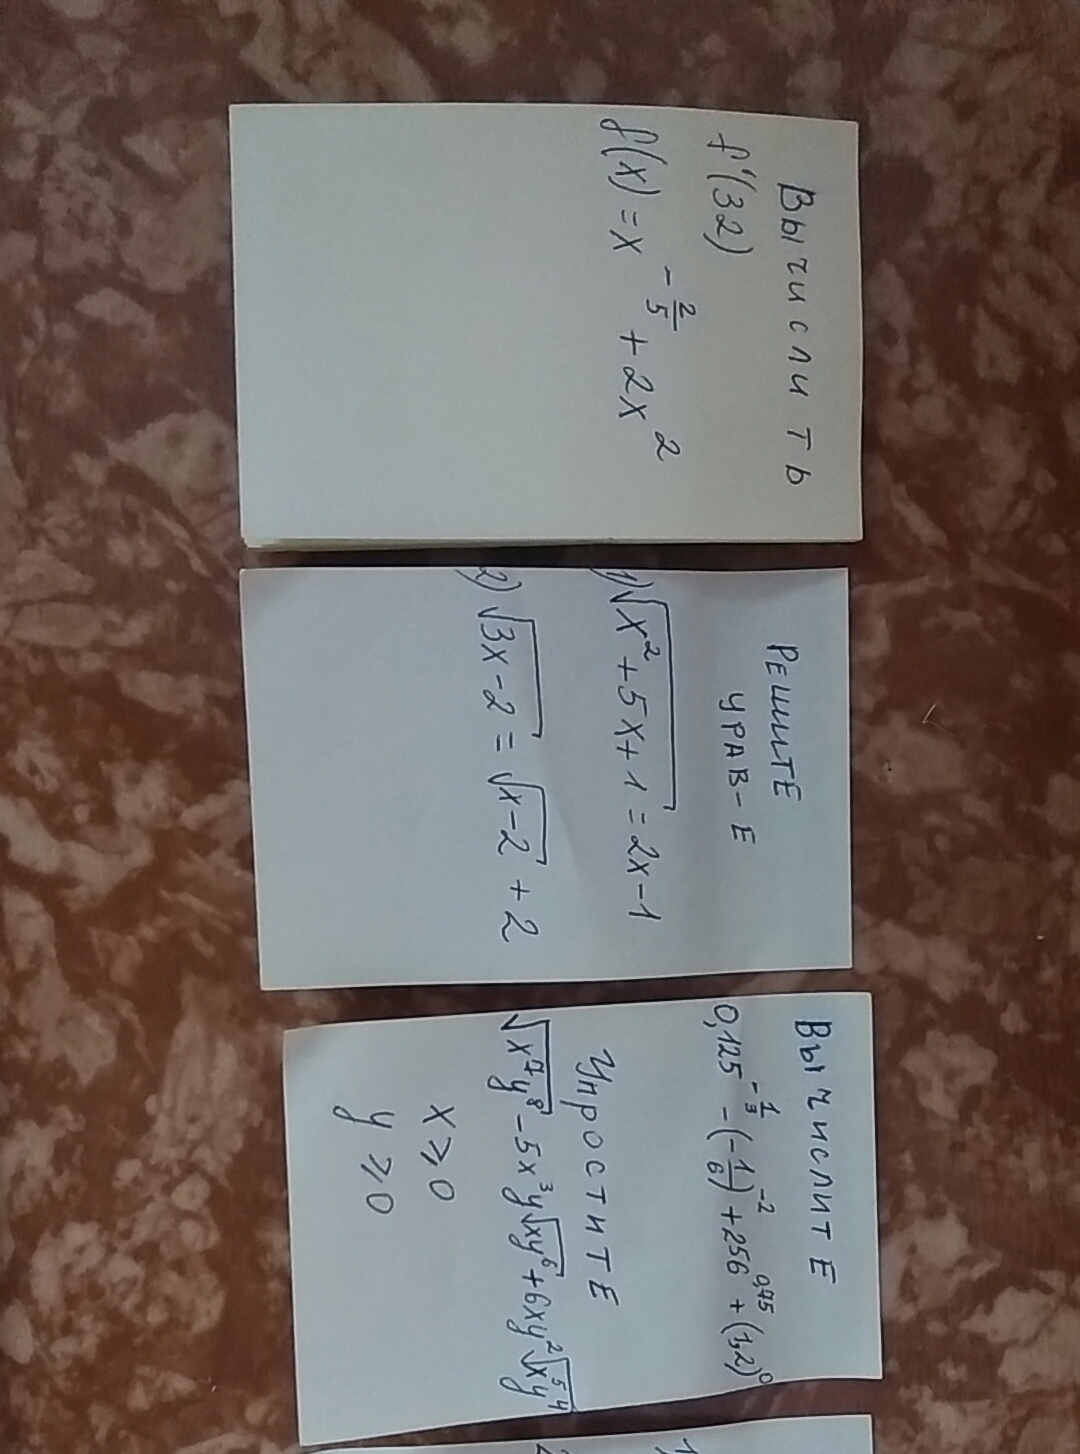 Вычислить
f'(32)
f(x) = x^(-2/5) + 2x^2
РЕШИТЕ
УРАВ-Е
1) √(x^2+5x+1) = 2x-1
2) √(3x-2) = √(x-2) + 2
ВЫЧИСЛИТЕ
0,125^(-1/3) - (-1/6)^(-2) + 256^(0,75) + (1,2)^0
УпроститЕ
√(x^7y^8) - 5x^3y√(xy^6) + 6xy^2√(x^5y^4)
x ⩾ 0
y ⩾ 0
1
2